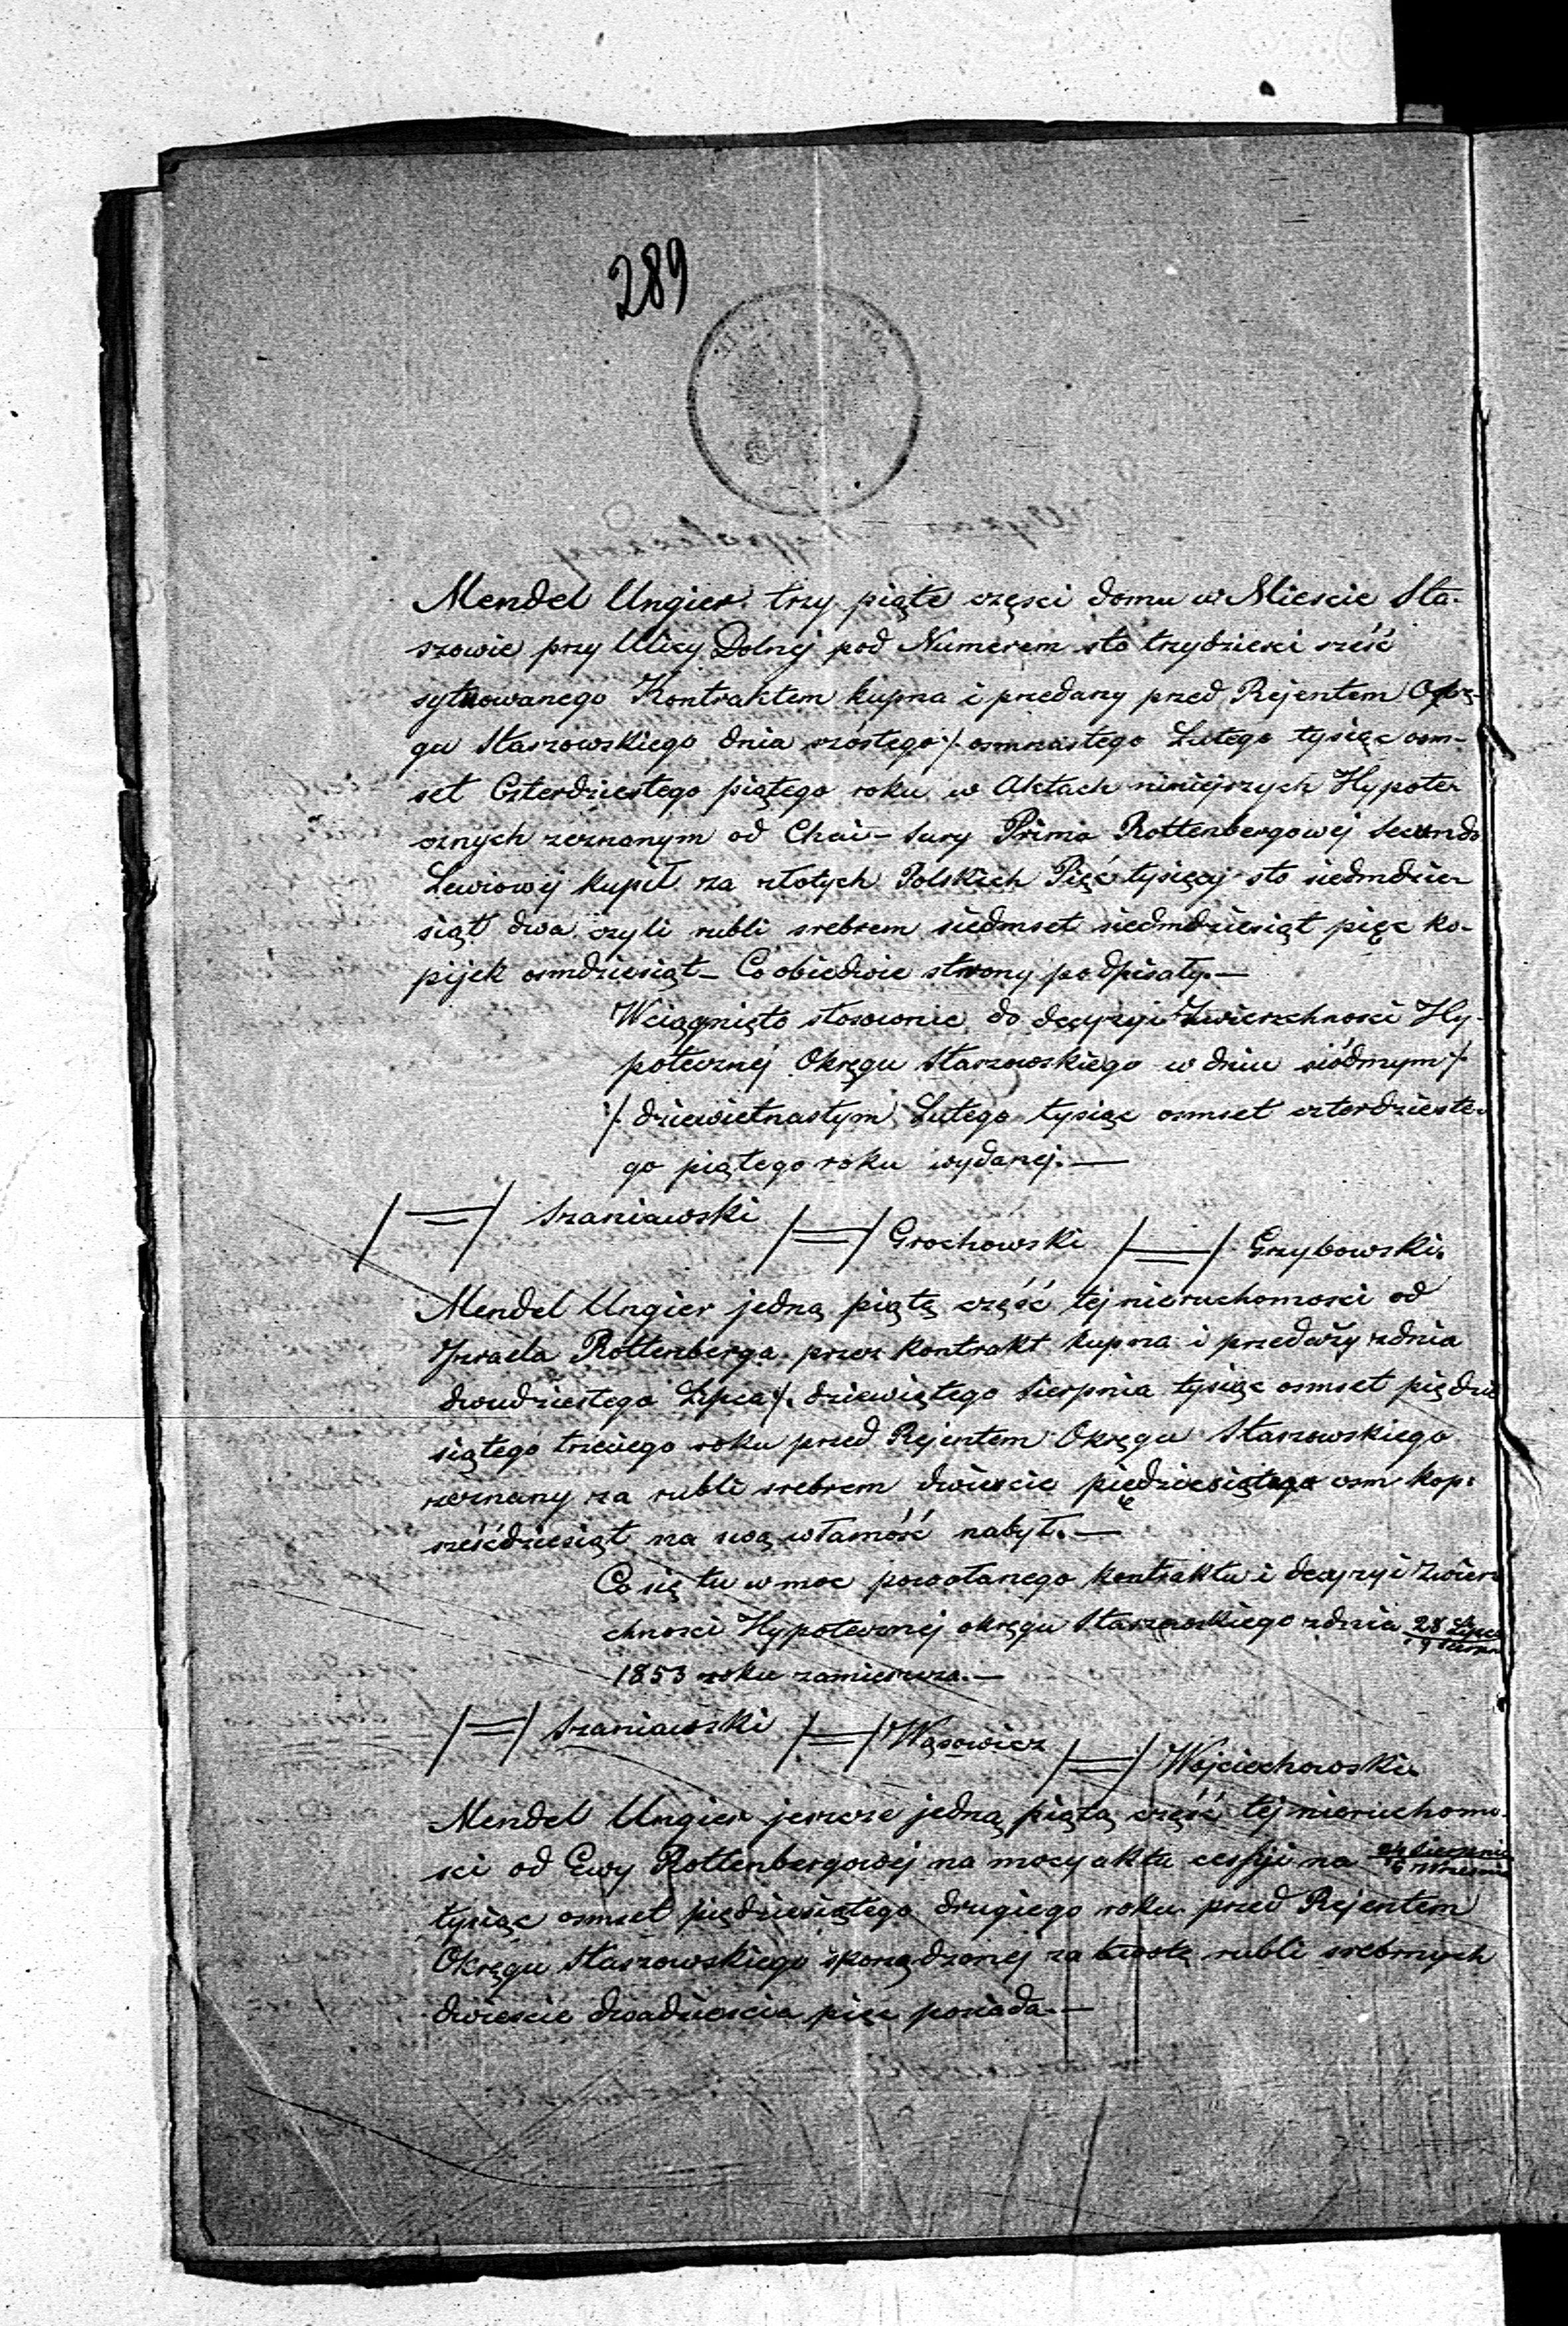 289
Mendel Ungier trzy piąte części domu w Mieście Sta-
szowie przy Ulicy Dolnej pod Numerem sto trzydzieści sześć
sytuowanego Kontraktem kupna i przedaży przed Rejentem Okrę-
gu Staszowskiego dnia szóstego /. osmnastego Lutego tysiąc osm-
set Czterdziestego piątego roku w Aktach niniejszych Hypote-
cznych zeznanym od Chai-Sury Primo Rottenbergowej Secundo
Lewiowej kupił za złotych Polskich Pięć tysięcy sto siedmdzie-
siąt dwa czyli rubli srebrem siedmset siedmdziesiąt pięć ko-
pijek osmdziesiąt – Co obiedwie strony podpisały. –
Wciągnięto stosownie do decyzyi Zwierzchności Hy-
potecznej Okręgu Staszowskiego w dniu siódmym /.
/. dziewietnastym Lutego tysiąc osmset czterdzieste-
go piątego roku wydanej. –
/=/ Szaniawski /=/ Grochowski /=/ Grzybowski.
Mendel Ungier jedną piątą część tej nieruchomości od
Izraela Rottenberga przez kontrakt kupna i przedaży z dnia
dwudziestego Lipca /. dziewiątego Sierpnia tysiąc osmset piędzie
siątego trzeciego roku przed Rejentem Okręgu Staszowskiego
zeznany za rubli srebrem dwieście piędziesiątego osm kop:
sześćdziesiąt na swą własność nabył. –
Co się tu w moc powołanego kontraktu i decyzyi Zwierz
chności Hypotecznej okręgu Staszowskiego z dnia 28 Lipca
1853 roku zamieszcza. –
/=/ Szaniawski /=/ Wąsowicz /=/ Wojciechowski.
Mendel Ungier jeszcze jedną piątą część tej nieruchomo-
ści od Ewy Rottenbergowej na mocy aktu cessyi na
tysiąc osmset piędziesiątego drugiego roku przed Rejentem
Okręgu Staszowskiego sporządzonej za kwotę rubli srebrnych
dwieście dwadzieścia pięć posiada. –